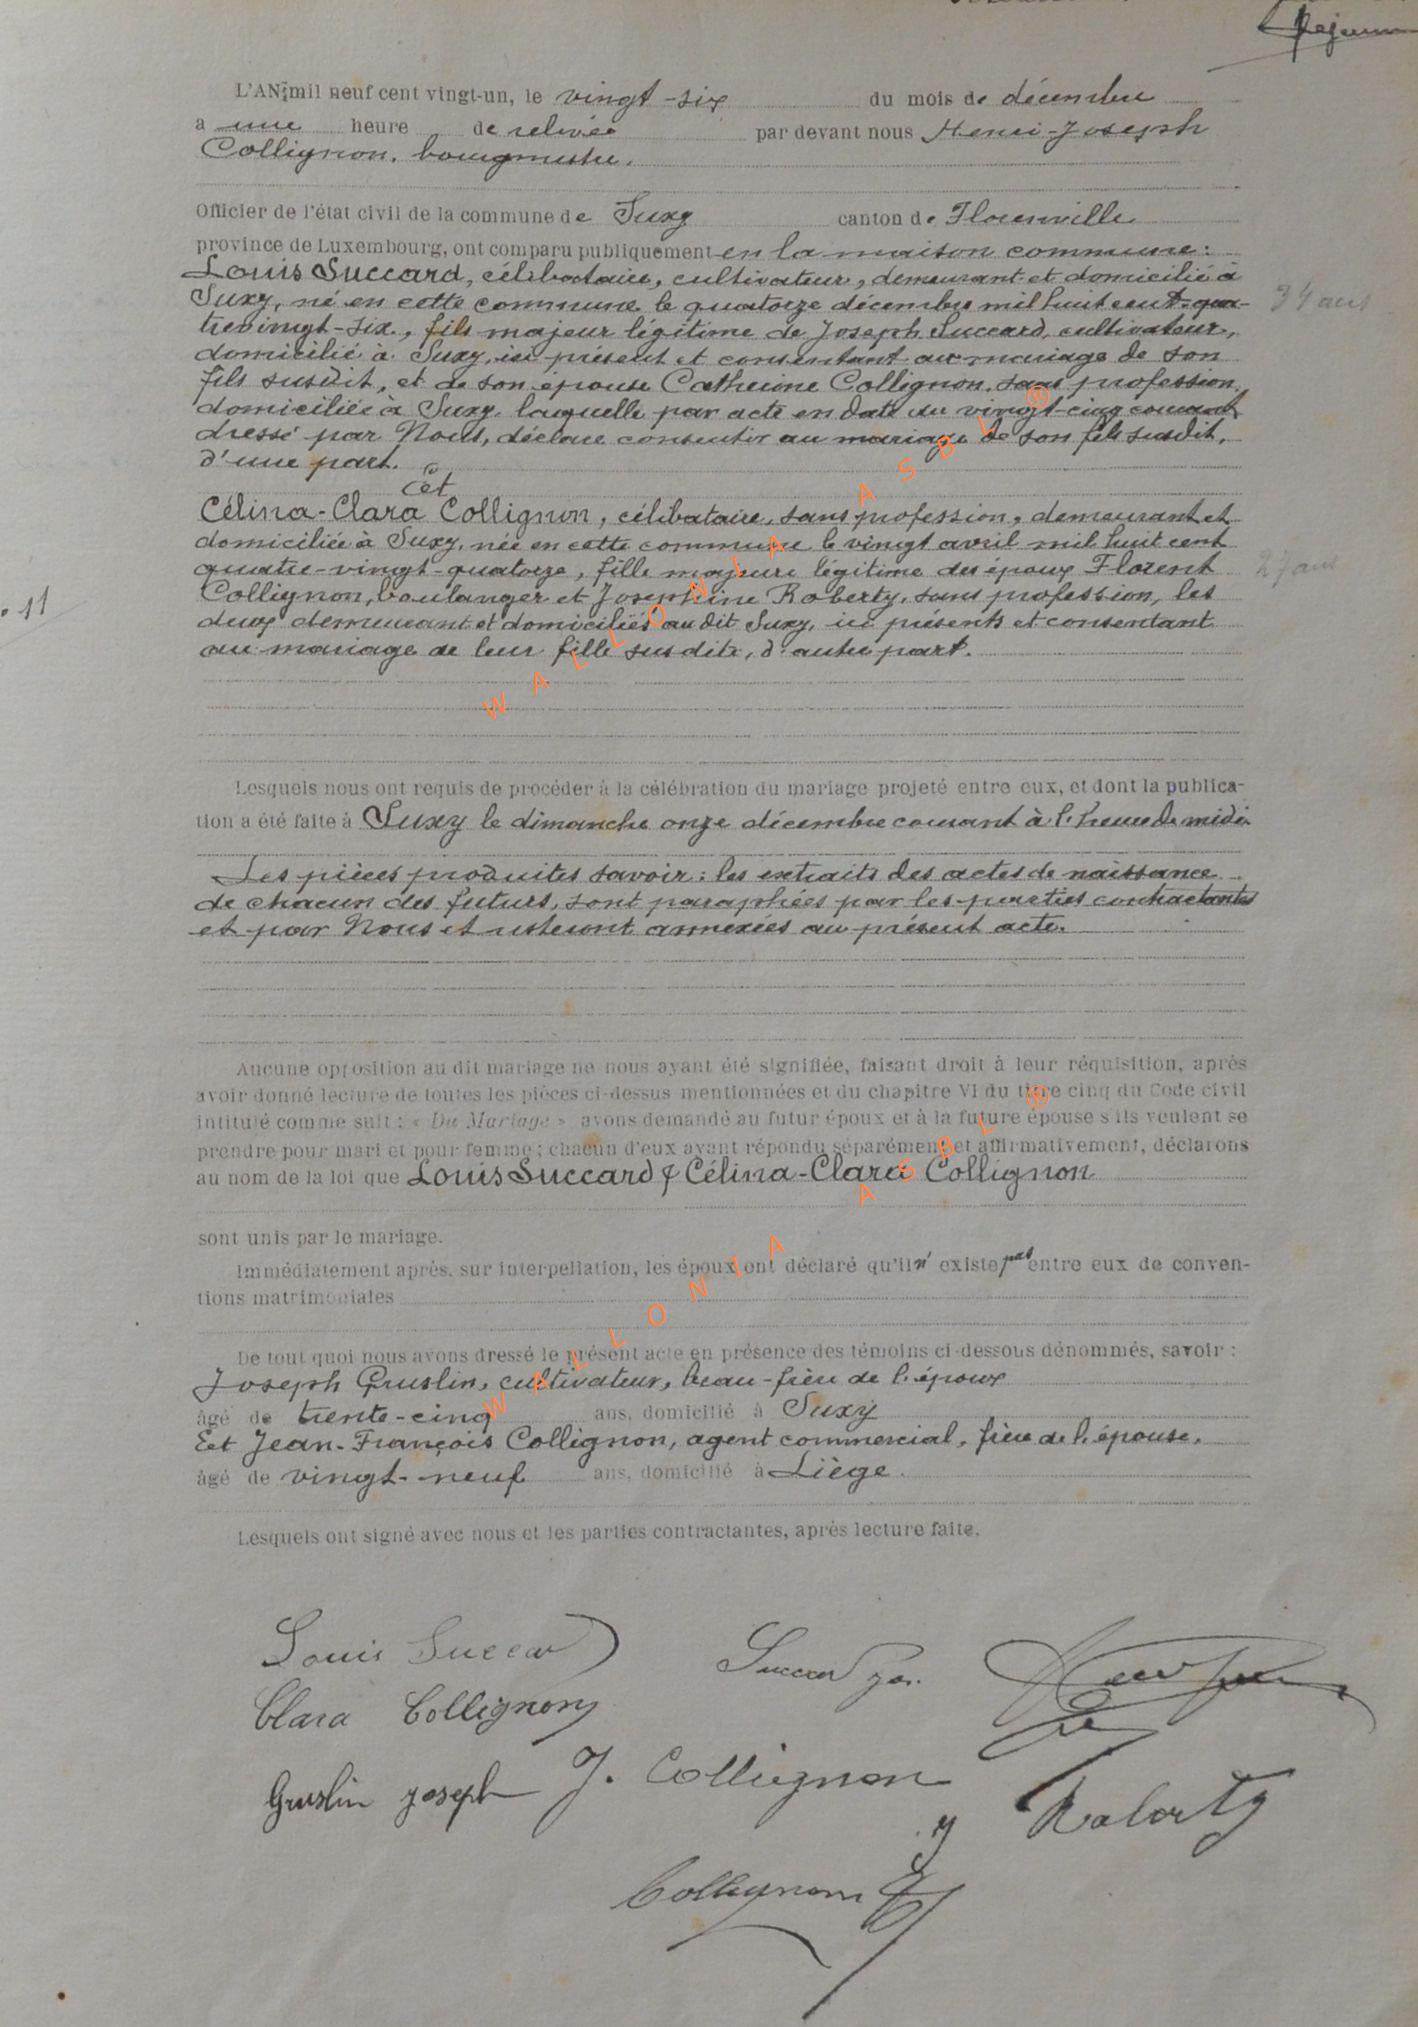 L'AN mil neuf cent vingt-un, le vingt-six du mois de décembre
a une heure de relevée par devant nous Henri-Joseph
Collignon, bourgmestre,
Officier de l'état civil de la commune de Suxy canton de Florenville
province de Luxembourg, ont comparu publiquement en la maison commune:
Louis Succard, célibataire, cultivateur, demeurant et domicilié à
34 ans
Suxy, né en cette commune le quatorze décembre mil huit cent qua-
trevingt-six, fils majeur légitime de Joseph Succard, cultivateur,
domicilié à Suxy, ici présent et consentant au mariage de son
fils susdit, et de son épouse Catherine Collignon, sans profession,
domiciliée à Suxy, laquelle par acte en date du vingt-cinq courant
dressé par Nous, déclare consentir au mariage de son fils susdit,
d'une part.
Et
Célina-Clara Collignon, célibataire, sans profession, demeurant et
domiciliée à Suxy, née en cette commune le vingt avril mil huit cent
27 ans
quatre-vingt-quatorze, fille majeure légitime des époux Florent
Collignon, boulanger et Joséphine Roberty, sans profession, les
11
deux demeurant et domiciliés au dit Suxy, ici présents et consentant
au mariage de leur fille susdite, d'autre part.
Lesquels nous ont requis de procéder à la célébration du mariage projeté entre eux, et dont la publica-
tion a été faite à Suxy le dimanche onze décembre courant à l'heure de midi.
Les pièces produites savoir: les extraits des actes de naissance
de chacun des futurs, sont paraphées par les parties contractantes
et par Nous et resteront annexées au présent acte.
Aucune opposition au dit mariage ne nous ayant été signifiée, faisant droit à leur réquisition, après
avoir donné lecture de toutes les pièces ci-dessus mentionnées et du chapitre VI du titre cinq du Code civil
intitulé comme suit: « Du Mariage » avons demandé au futur époux et à la future épouse s'ils veulent se
prendre pour mari et pour femme; chacun d'eux ayant répondu séparément et affirmativement, déclarons
au nom de la loi que Louis Succard & Célina-Clara Collignon
sont unis par le mariage.
Immédiatement après, sur interpellation, les époux ont déclaré qu'il n'existe pas entre eux de conven-
tions matrimoniales
De tout quoi nous avons dressé le présent acte en présence des témoins ci-dessous dénommés, savoir:
Joseph Gruslin, cultivateur, beau-frère de l'époux
âgé de trente-cinq ans, domicilié à Suxy
Eet Jean-François Collignon, agent commercial, frère de l'épouse,
âgé de vingt-neuf ans, domicilié à Liège.
Lesquels ont signé avec nous et les parties contractantes, après lecture faite.
Louis Succard
Succard Jos.
Clara Collignon
Gruslin Joseph
J. Collignon
J Roberty
Collignon
WALLONIA ASBL ®
WALLONIA ASBL ®